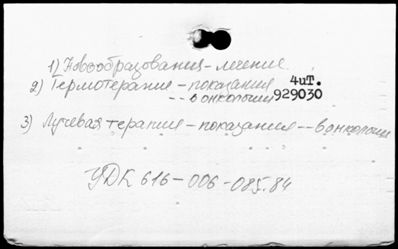 1) Новообразования - лечение.
2) Термотерапия - показания 4ит.
-- в онкологии 929030
3) Лучевая терапия - показания -- в онкологии
УДК 616-006-085.84